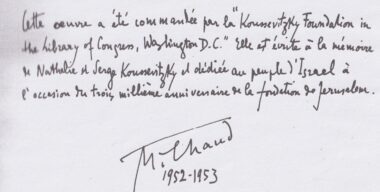 Cette œuvre a été commandée par la "Koussevitzky Foundation in
the Library of Congress, Washington D.C." Elle est écrite à la mémoire
de Nathalie et Serge Koussevitzky et dédiée au peuple d'Israel à
l'occasion du trois millième anniversaire de la fondation de Jerusalem.
Milhaud
1952-1953